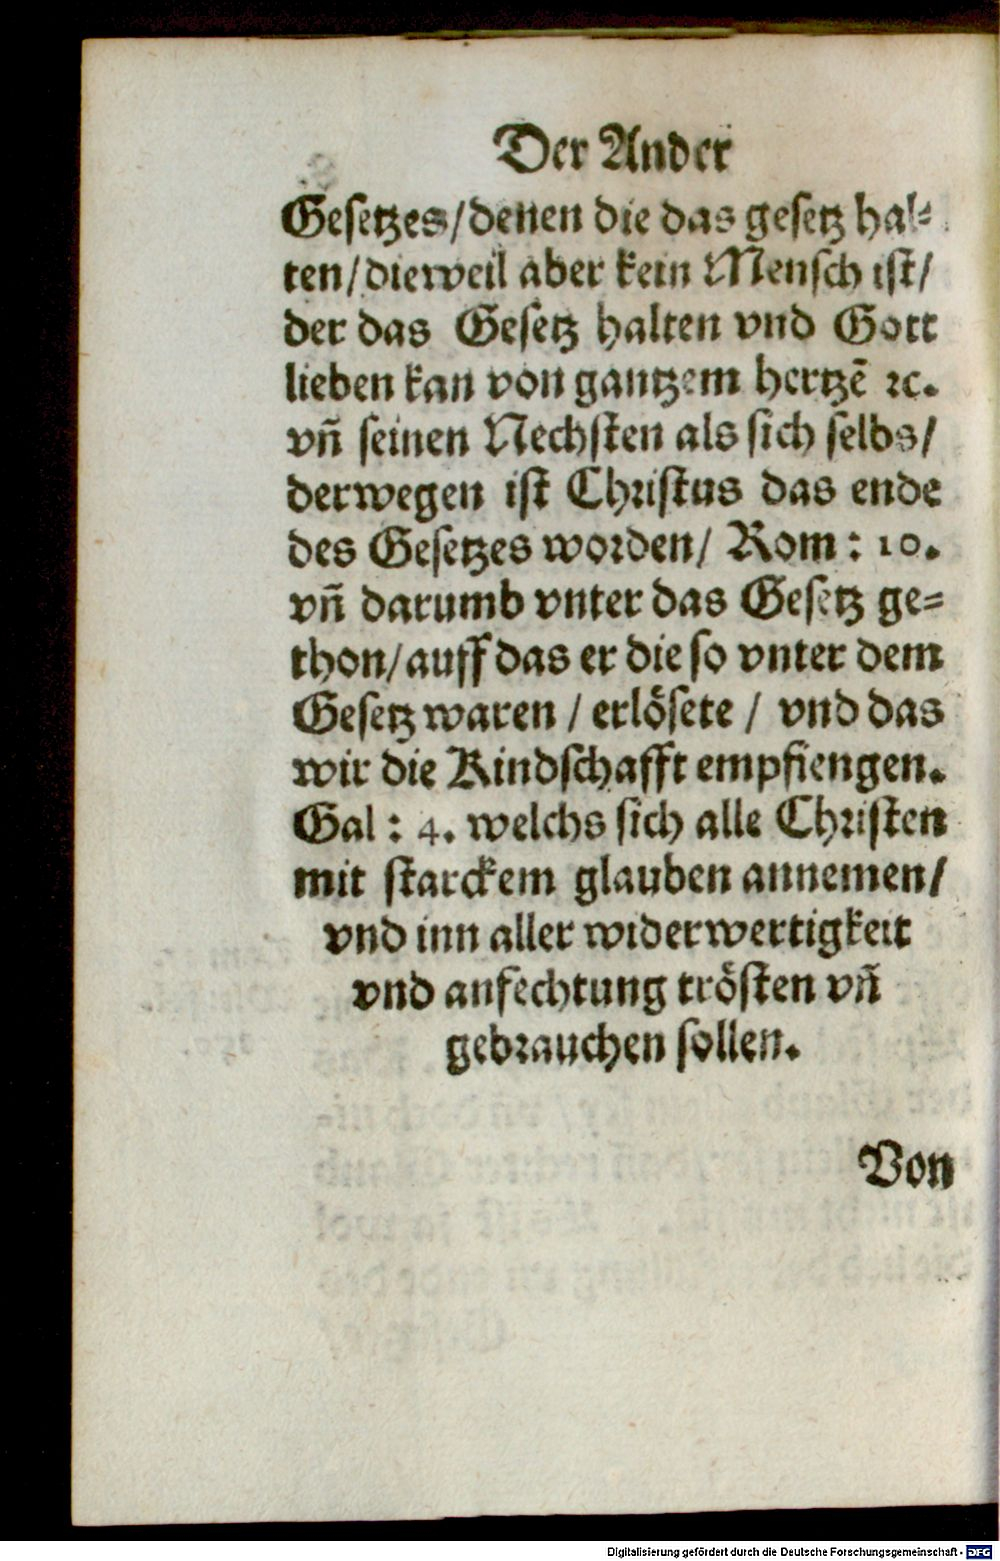 Der Ander
Gesetzes/denen die das gesetz hal⸗
ten/dieweil aber kein Mensch ist/
der das Gesetz halten vnd Gott
lieben kan von gantzem hertzẽ ꝛc.
vñ seinen Nechsten als sich selbs/
derwegen ist Christus das ende
des Gesetzes worden/ Rom: 10.
vñ darumb vnter das Gesetz ge⸗
thon/auff das er die so vnter dem
Gesetz waren / erlösete / vnd das
wir die Kindschafft empfiengen.
Gal: 4. welchs sich alle Christen
mit starckem glauben annemen/
vnd inn aller widerwertigkeit
vnd anfechtung trösten vñ
gebrauchen sollen.
Von
Digitalisierung gefördert durch die Deutsche Forschungsgemeinschaft - DFG